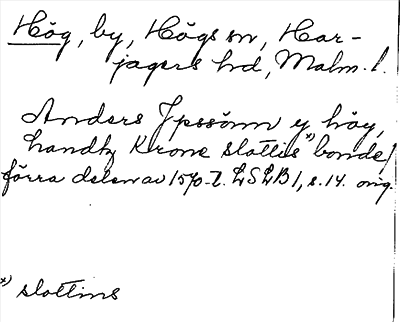 Hög, by, Högs sn, Har-
jagers hd, Malm. l.
Anders Jpssönn y höy,
handtz Krone slottis*) bonde/
förra delen av 1570-t. LSLB 1, s. 14. orig.
*) slottins